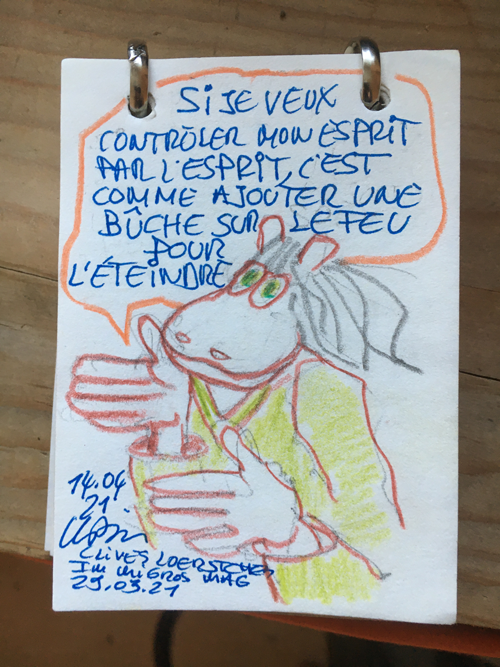 SI JE VEUX
CONTRÔLER MON ESPRIT
PAR L'ESPRIT, C'EST
COMME AJOUTER UNE
BÛCHE SUR LE FEU
POUR
L'ÉTEINDRE
14.04
21
CLIVES
IM MIGROS MAG
29.03.21